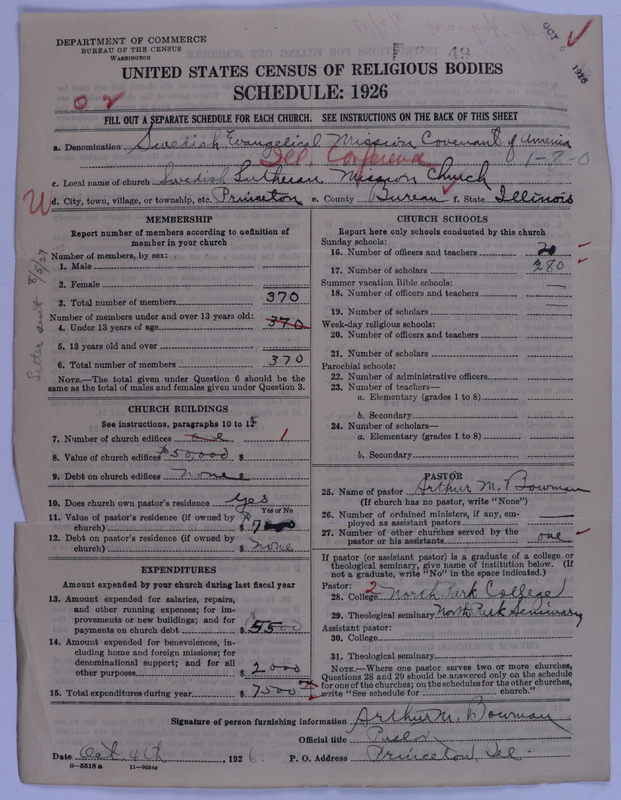 DEPARTMENT OF COMMERCE
BUREAU OF THE CENSUS
WASHINGTON
OCT 1926
UNITED STATES CENSUS OF RELIGIOUS BODIES
SCHEDULE: 1926
FILL OUT A SEPARATE SCHEDULE FOR EACH CHURCH. SEE INSTRUCTIONS ON THE BACK OF THIS SHEET
a. Denomination Swedish Evangelical Mission Covenant of America
Ill. Conference 1-8-0
c. Local name of church Swedish Lutheran Mission Church
d. City, town, village, or township, etc. Princeton e. County Bureau f. State Illinois
Letter sent 8/5/27
MEMBERSHIP
Report number of members according to definition of
member in your church
Number of members, by sex:
1. Male
2. Female
3. Total number of members 370
Number of members under and over 13 years old:
4. Under 13 years of age 370
5. 13 years old and over
6. Total number of members 370
NOTE.—The total given under Question 6 should be the
same as the total of males and females given under Question 3.
CHURCH BUILDINGS
See instructions, paragraphs 10 to 12
7. Number of church edifices one 1
8. Value of church edifices $50,000 $
9. Debt on church edifices none
10. Does church own pastor's residence yes
Yes or No
11. Value of pastor's residence (if owned by
church) $
12. Debt on pastor's residence (if owned by
church) $ none
EXPENDITURES
Amount expended by your church during last fiscal year
13. Amount expended for salaries, repairs,
and other running expenses; for im-
provements or new buildings; and for
payments on church debt $ 5500
14. Amount expended for benevolences, in-
cluding home and foreign missions; for
denominational support; and for all
other purposes $ 2000
15. Total expenditures during year $ 7500
CHURCH SCHOOLS
Report here only schools conducted by this church
Sunday schools:
16. Number of officers and teachers 20
17. Number of scholars 280
Summer vacation Bible schools:
18. Number of officers and teachers —
19. Number of scholars —
Week-day religious schools:
20. Number of officers and teachers
21. Number of scholars
Parochial schools:
22. Number of administrative officers
23. Number of teachers—
a. Elementary (grades 1 to 8)
b. Secondary
24. Number of scholars—
a. Elementary (grades 1 to 8)
b. Secondary
PASTOR
25. Name of pastor Arthur M. Bowman
(If church has no pastor, write "None")
26. Number of ordained ministers, if any, em-
ployed as assistant pastors —
27. Number of other churches served by the
pastor or his assistants one
If pastor (or assistant pastor) is a graduate of a college or
theological seminary, give name of institution below. (If
not a graduate, write "No" in the space indicated.)
Pastor:
28. College 2 North Park College
29. Theological seminary North Park Seminary
Assistant pastor:
30. College
31. Theological seminary
NOTE.—Where one pastor serves two or more churches,
Questions 28 and 29 should be answered only on the schedule
for one of the churches; on the schedules for the other churches,
write "See schedule for church."
Signature of person furnishing information Arthur M. Bowman
Official title Pastor
Date Oct. 4th, 1926 P. O. Address Princeton, Ill.
8—5518 a 11—9054